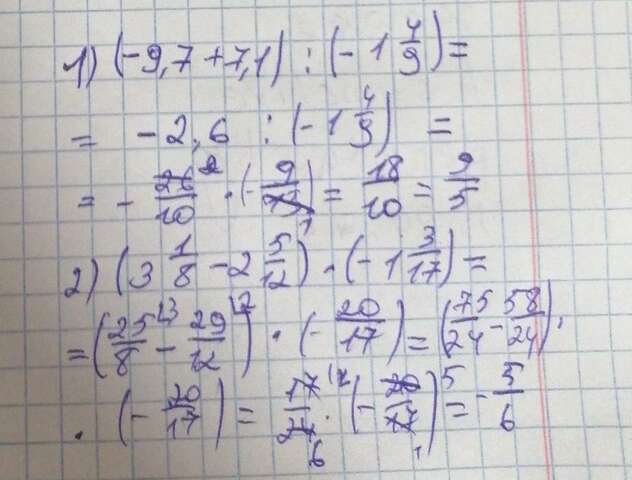 1) (-9,7+7,1) : (-1 4/9) =
= -2,6 : (-1 4/9) =
= - 26 2/10 · (- 9/13 1) = 18/10 = 9/5
2) (3 1/8 - 2 5/12) · (-1 3/17) =
= (25/8 |3 - 29/12 |2) · (- 20/17) = (75/24 - 58/24) ·
· (- 20/17) = 17/24 6 · (- 20/17 1) 5 = - 5/6